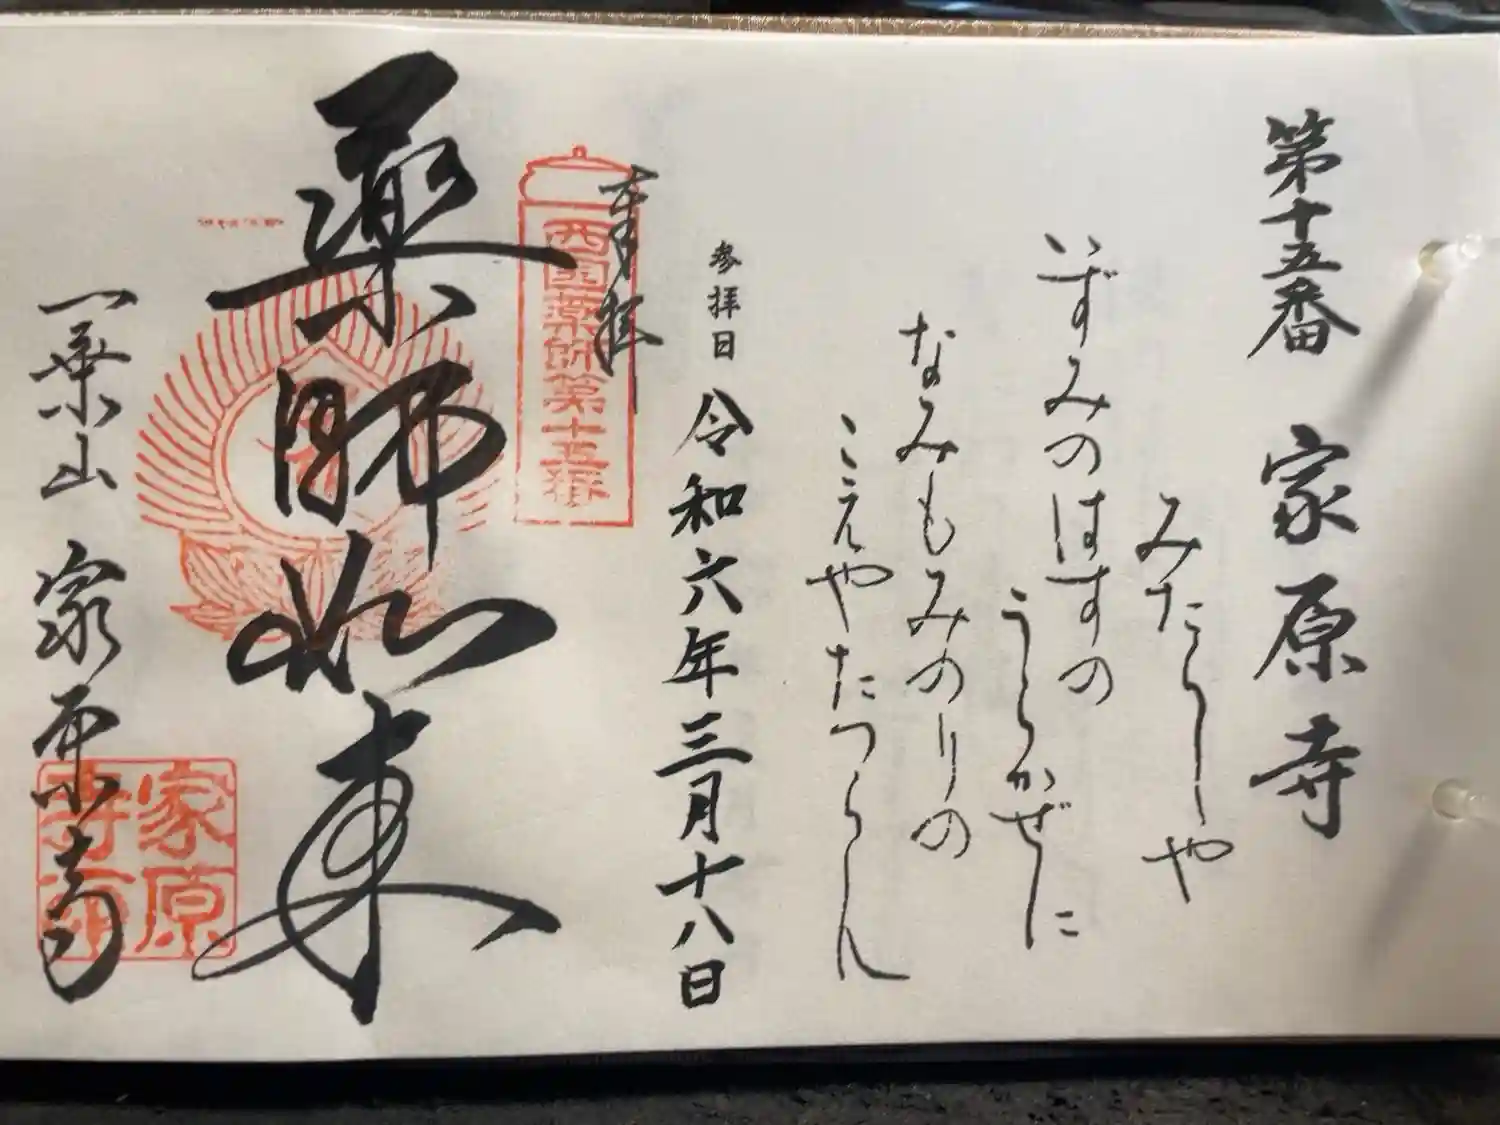 第十五番 家原寺
みたらしや
いずみのはすの
うらかぜに
なみもみのりの
こえやたつらん
参拝日 令和六年三月十八日
奉拝
西国薬師第十五
薬師如来
一乗山 家原寺
家原
寺印